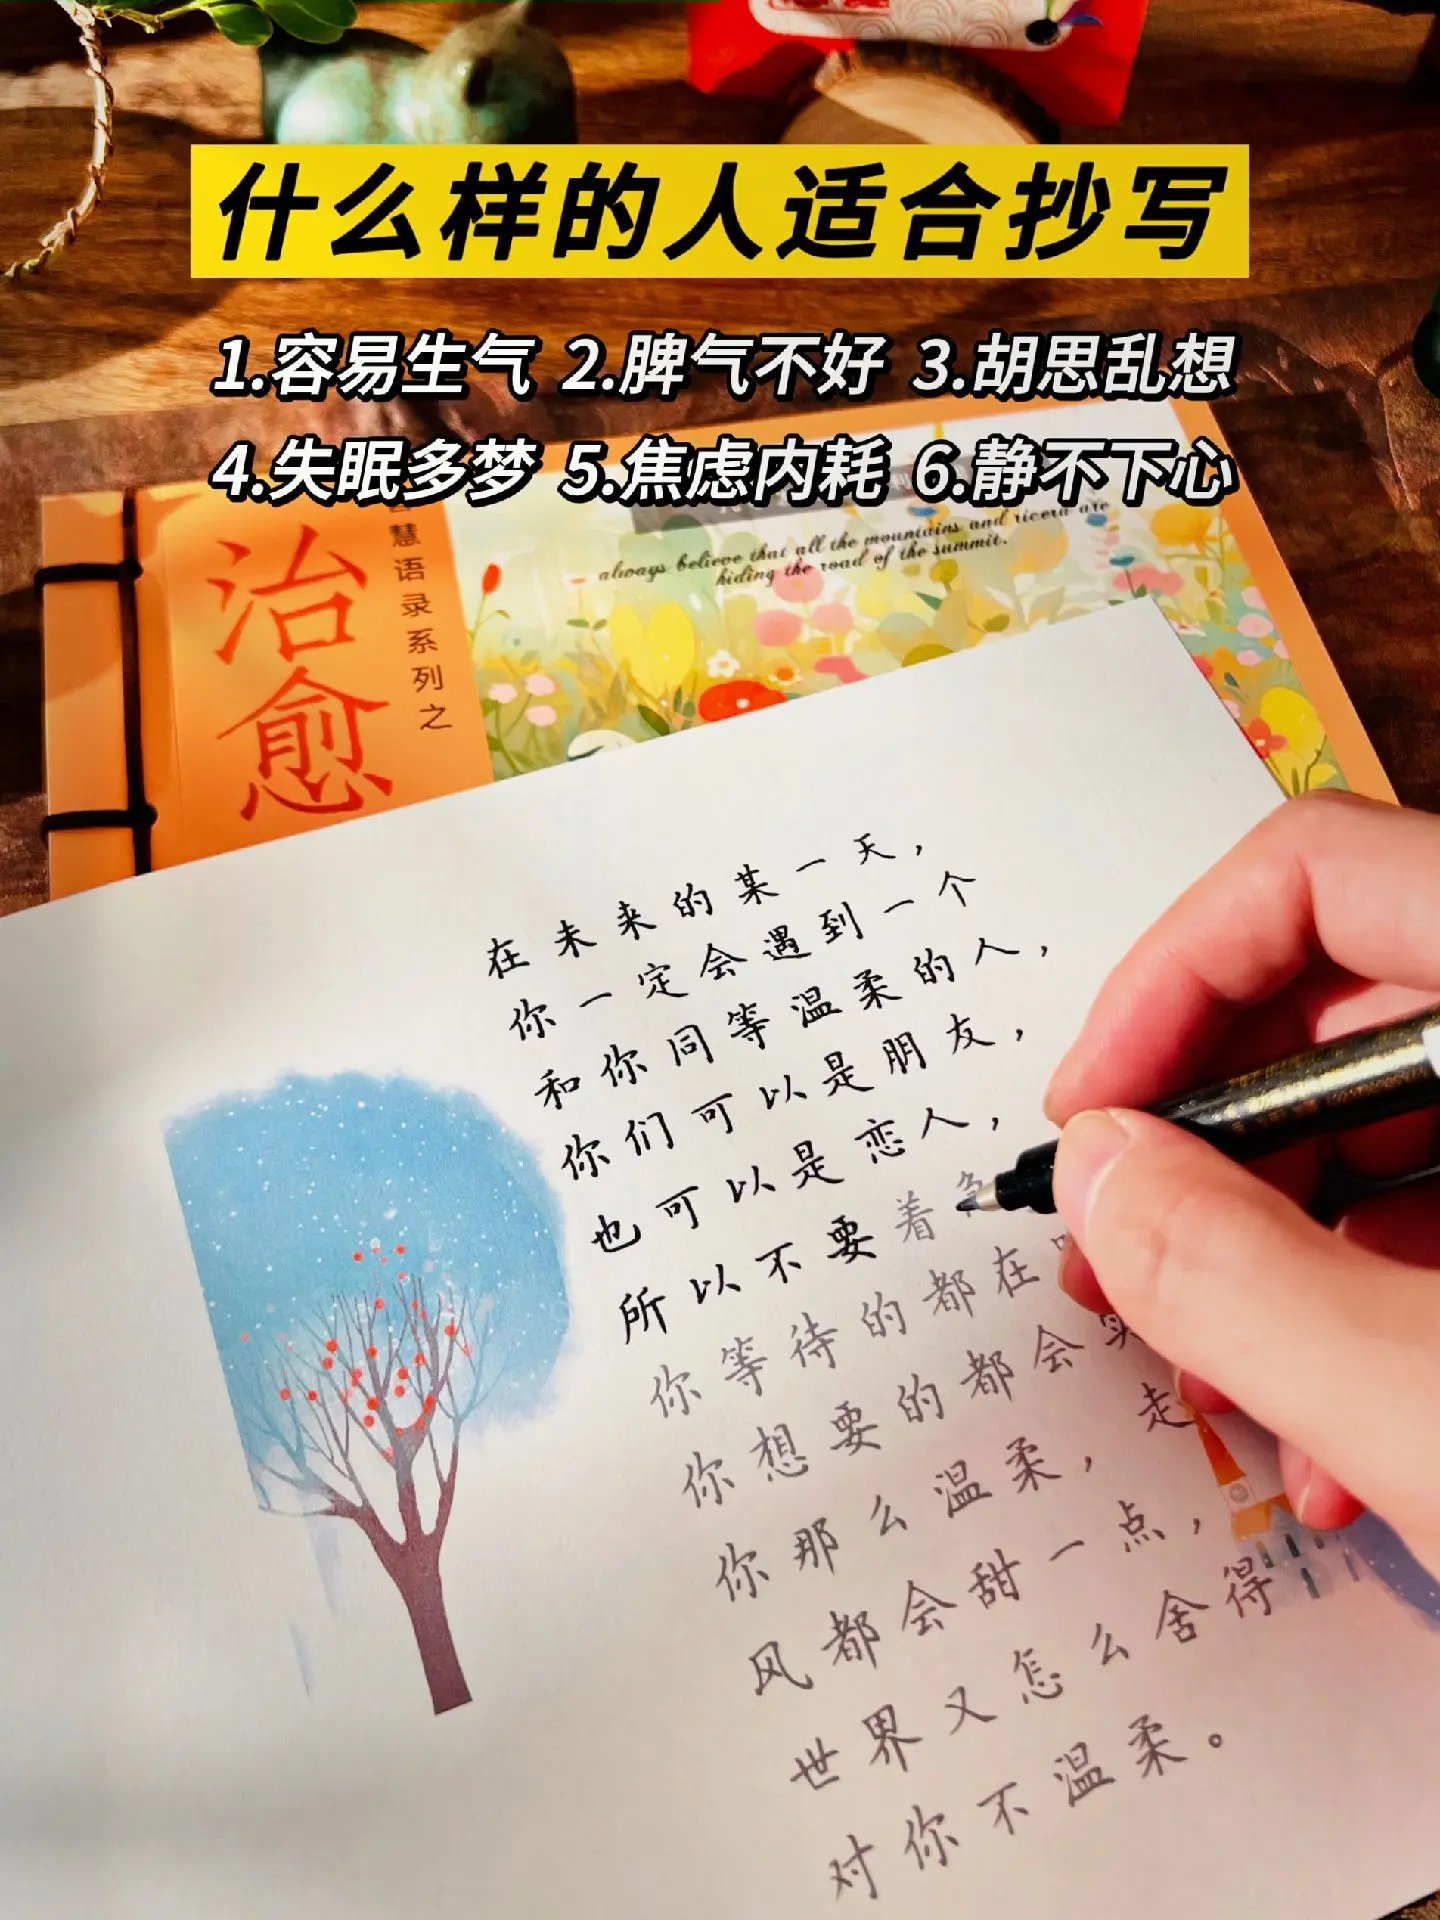 什么样的人适合抄写
1.容易生气 2.脾气不好 3.胡思乱想
4.失眠多梦 5.焦虑内耗 6.静不下心
慧语录系列之
治愈
always believe that all the mountains and are
hiding the road of the summit.
在未来的某一天，
你一定会遇到一个
和你同等温柔的人，
你们可以是朋友，
也可以是恋人，
所以不要着
你等待的都在
你想要的都会实
你那么温柔，走
风都会甜一点，
世界又怎么舍得
对你不温柔。